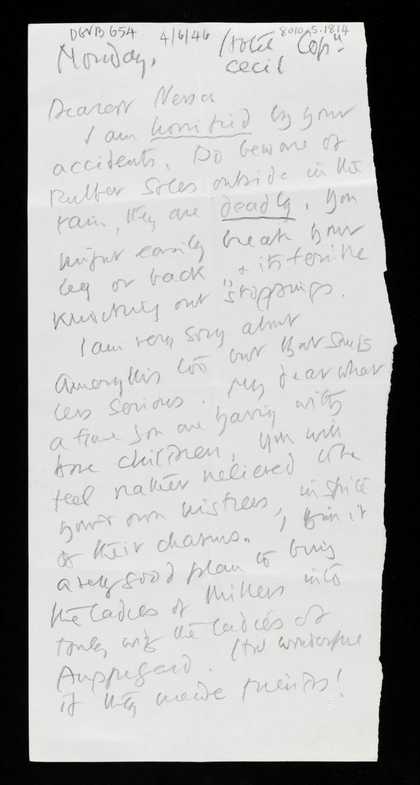 DGVB 654 4/6/46 8010.5.1814
Monday.
cecil
Dearest Nessa
I am horrified by your
accidents. Do beware of
Rubber Soles outside in the
rain, they are deadly. You
might easily break your
leg or back + its terrible
knocking out "stoppings".
I am very sorry about
Amaryllis too but that sounds
less serious. My dear what
a time you are having with
those children, you will
feel rather relieved when
your own mistress, in spite
of their charms. I think it
a very good plan to bring
the ladies of Millers into
touch with the ladies of
Auppegard. How wonderful
if they made friends!